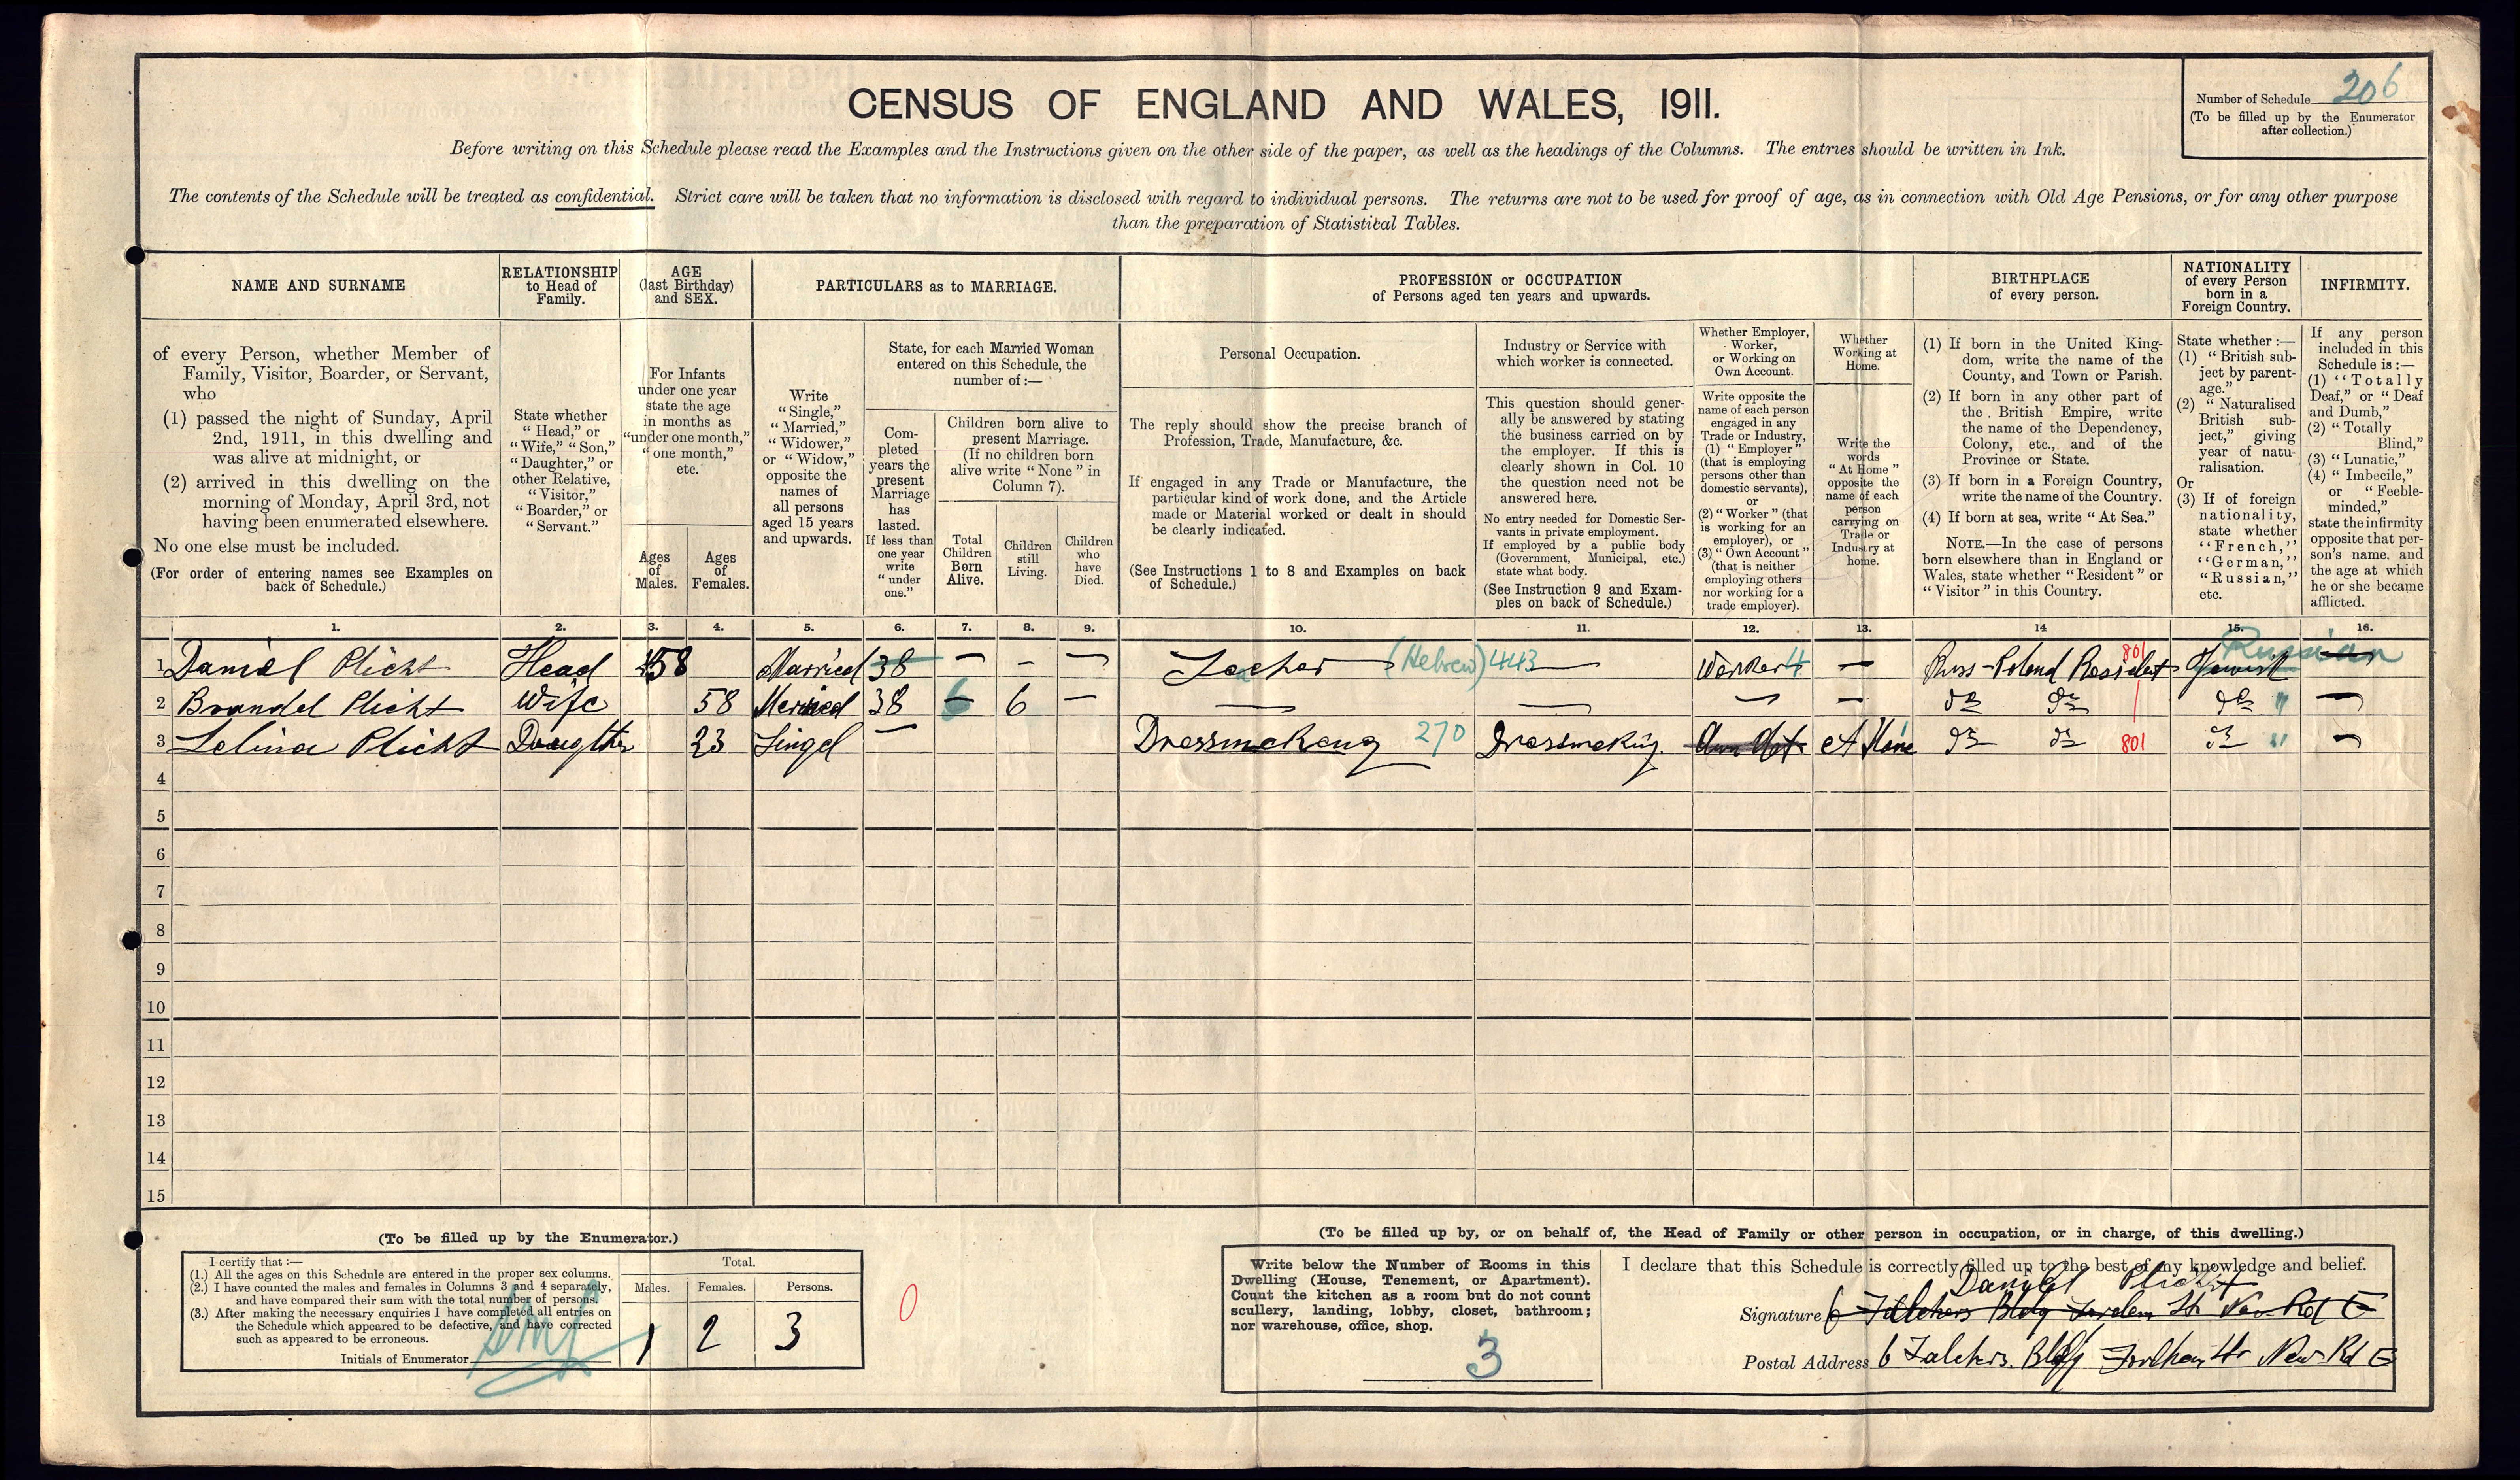 CENSUS OF ENGLAND AND WALES, 1911.
Number of Schedule 206
(To be filled up by the Enumerator
after collection.)
Before writing on this Schedule please read the Examples and the Instructions given on the other side of the paper, as well as the headings of the Columns. The entries should be written in Ink.
The contents of the Schedule will be treated as confidential. Strict care will be taken that no information is disclosed with regard to individual persons. The returns are not to be used for proof of age, as in connection with Old Age Pensions, or for any other purpose
than the preparation of Statistical Tables.
NAME AND SURNAME
of every Person, whether Member of
Family, Visitor, Boarder, or Servant,
who
(1) passed the night of Sunday, April
2nd, 1911, in this dwelling and
was alive at midnight, or
(2) arrived in this dwelling on the
morning of Monday, April 3rd, not
having been enumerated elsewhere.
No one else must be included.
(For order of entering names see Examples on
back of Schedule.)
RELATIONSHIP
to Head of
Family.
State whether
"Head," or
"Wife," "Son,"
"Daughter," or
other Relative,
"Visitor,"
"Boarder," or
"Servant."
AGE
(last Birthday)
and SEX.
For Infants
under one year
state the age
in months as
"under one month,"
"one month,"
etc.
Ages
of
Males.
Ages
of
Females.
PARTICULARS as to MARRIAGE.
Write
"Single,"
"Married,"
"Widower,"
or "Widow,"
opposite the
names of
all persons
aged 15 years
and upwards.
State, for each Married Woman
entered on this Schedule, the
number of :—
Com-
pleted
years the
present
Marriage
has
lasted.
If less than
one year
write
"under
one."
Children born alive to
present Marriage.
(If no children born
alive write "None" in
Column 7).
Total
Children
Born
Alive.
Children
still
Living.
Children
who
have
Died.
PROFESSION or OCCUPATION
of Persons aged ten years and upwards.
Personal Occupation.
The reply should show the precise branch of
Profession, Trade, Manufacture, &c.
If engaged in any Trade or Manufacture, the
particular kind of work done, and the Article
made or Material worked or dealt in should
be clearly indicated.
(See Instructions 1 to 8 and Examples on back
of Schedule.)
Industry or Service with
which worker is connected.
This question should gener-
ally be answered by stating
the business carried on by
the employer. If this is
clearly shown in Col. 10
the question need not be
answered here.
No entry needed for Domestic Ser-
vants in private employment.
If employed by a public body
(Government, Municipal, etc.)
state what body.
(See Instruction 9 and Exam-
ples on back of Schedule.)
Whether Employer,
Worker,
or Working on
Own Account.
Write opposite the
name of each person
engaged in any
Trade or Industry,
(1) "Employer"
(that is employing
persons other than
domestic servants),
or
(2) "Worker" (that
is working for an
employer), or
(3) "Own Account"
(that is neither
employing others
nor working for a
trade employer).
Whether
Working at
Home.
Write the
words
"At Home"
opposite the
name of each
person
carrying on
Trade or
Industry at
home.
BIRTHPLACE
of every person.
(1) If born in the United King-
dom, write the name of the
County, and Town or Parish.
(2) If born in any other part of
the British Empire, write
the name of the Dependency,
Colony, etc., and of the
Province or State.
(3) If born in a Foreign Country,
write the name of the Country.
(4) If born at sea, write "At Sea."
NOTE.—In the case of persons
born elsewhere than in England or
Wales, state whether "Resident" or
"Visitor" in this Country.
NATIONALITY
of every Person
born in a
Foreign Country.
State whether :—
(1) "British sub-
ject by parent-
age."
(2) "Naturalised
British sub-
ject," giving
year of natu-
ralisation.
Or
(3) If of foreign
nationality,
state whether
"French,"
"German,"
"Russian,"
etc.
INFIRMITY.
If any person
included in this
Schedule is :—
(1) "Totally
Deaf," or "Deaf
and Dumb,"
(2) "Totally
Blind,"
(3) "Lunatic,"
(4) "Imbecile,"
or "Feeble-
minded,"
state the infirmity
opposite that per-
son's name, and
the age at which
he or she became
afflicted.
1. 2. 3. 4. 5. 6. 7. 8. 9. 10. 11. 12. 13. 14 15. 16.
1 Daniel Plicht Head 58 Married 38 — — — (Hebrew) 443 — Worker 4 — Russ-Poland Resident 801 Jewish Russian —
2 Brandel Plicht Wife 58 Married 38 6 6 — — — — — do do do " —
3 Selina Plicht Daugther 23 Singel — Dressmekeng 270 Dressmeking. Own Act A Home do do 801 do " —
4
5
6
7
8
9
10
11
12
13
14
15
(To be filled up by the Enumerator.)
I certify that :—
(1.) All the ages on this Schedule are entered in the proper sex columns.
(2.) I have counted the males and females in Columns 3 and 4 separately,
and have compared their sum with the total number of persons.
(3.) After making the necessary enquiries I have completed all entries on
the Schedule which appeared to be defective, and have corrected
such as appeared to be erroneous.
Initials of Enumerator
Total.
Males. Females. Persons.
1 2 3
0
(To be filled up by, or on behalf of, the Head of Family or other person in occupation, or in charge, of this dwelling.)
Write below the Number of Rooms in this
Dwelling (House, Tenement, or Apartment).
Count the kitchen as a room but do not count
scullery, landing, lobby, closet, bathroom;
nor warehouse, office, shop.
3
I declare that this Schedule is correctly filled up to the best of my knowledge and belief.
Daniel Plicht
Signature 6 Bldg St New Rd E
Postal Address 6 Bldg New Rd E